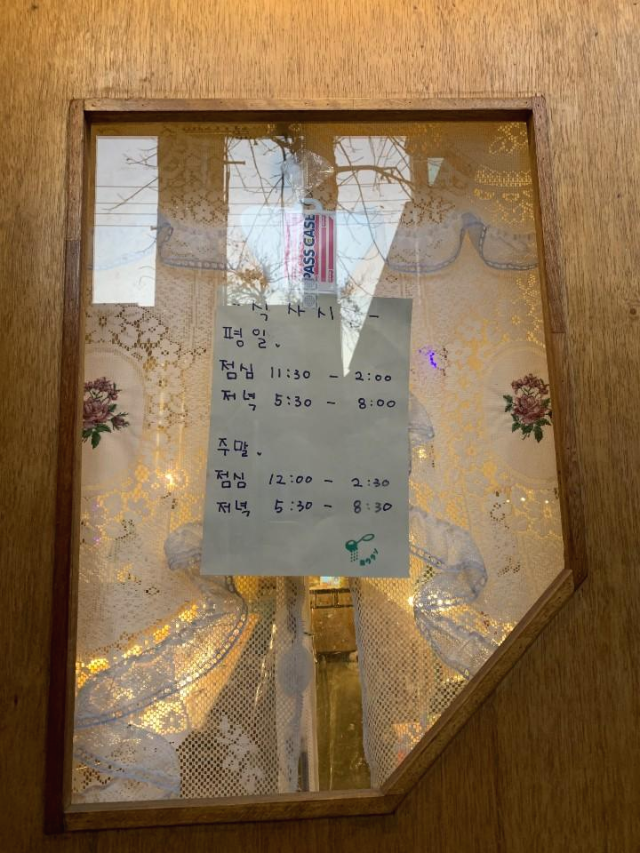 PASS CASE
평일.
점심 11:30 - 2:00
저녁 5:30 - 8:00
주말.
점심 12:00 - 2:30
저녁 5:30 - 8:30